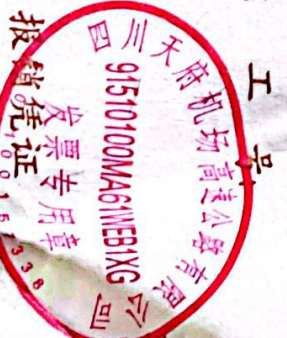 工号
四川天府机场高速公路有限公司
91510100MA61WEB1XG
发票专用章
报销凭证